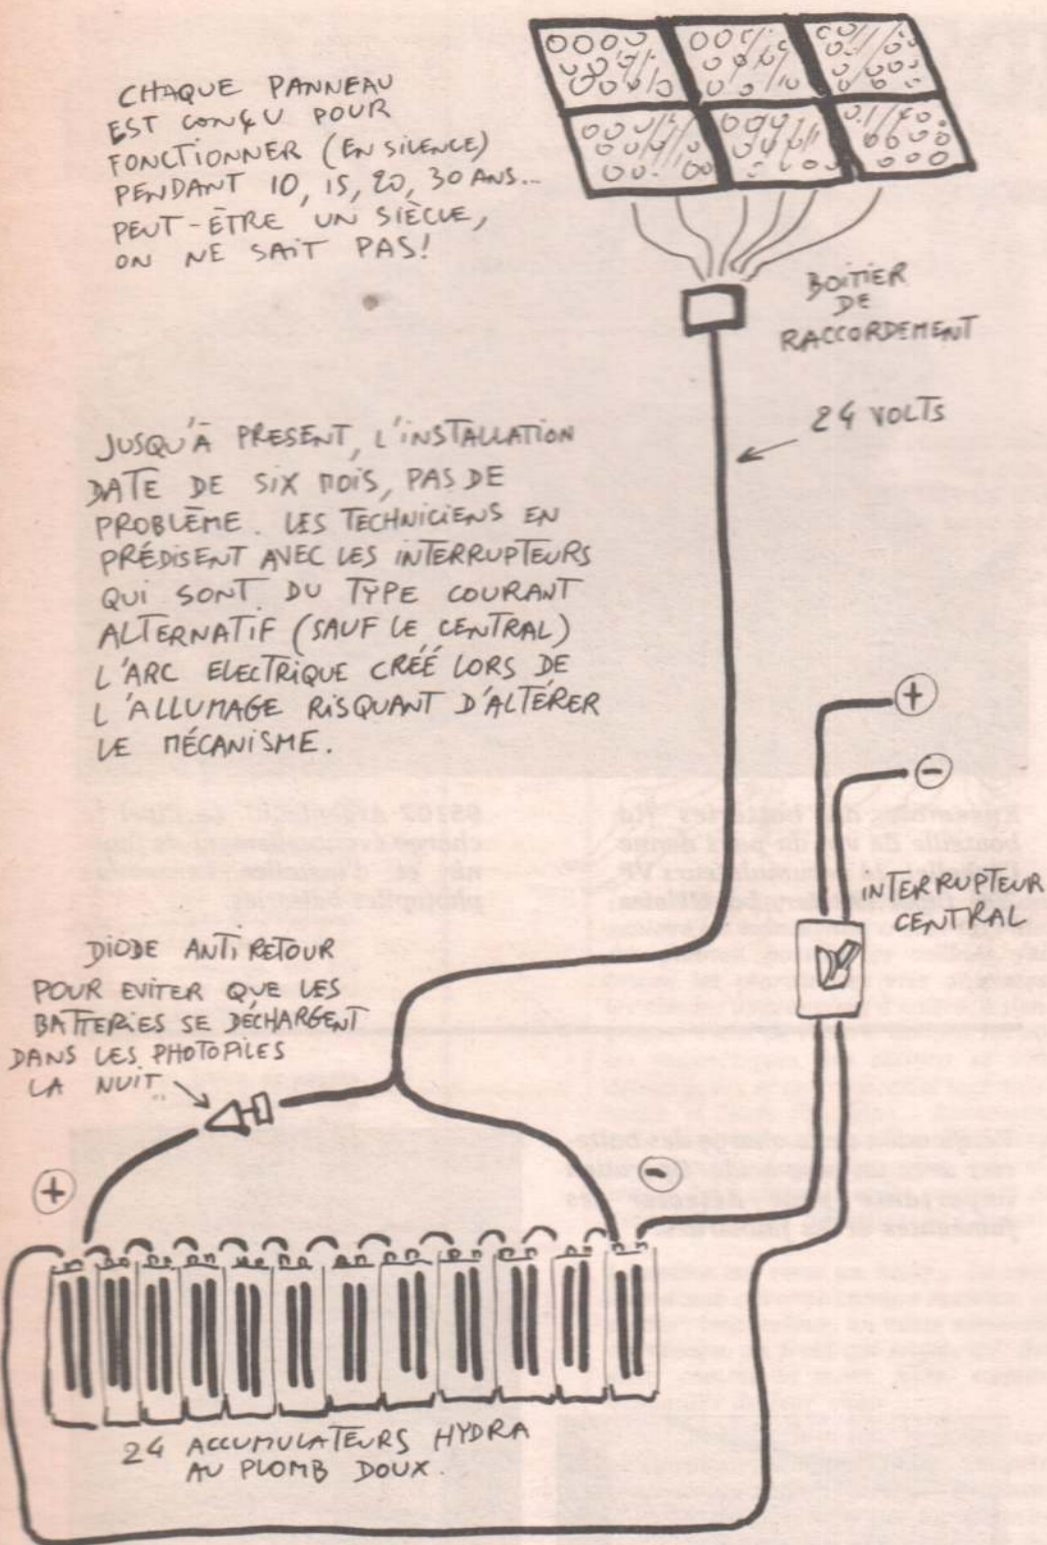 CHAQUE PANNEAU
EST CONÇU POUR
FONCTIONNER (EN SILENCE)
PENDANT 10, 15, 20, 30 ANS...
PEUT-ÊTRE UN SIÈCLE,
ON NE SAIT PAS!
BOITIER
DE
RACCORDEMENT
24 VOLTS
JUSQU'À PRESENT, L'INSTALLATION
DATE DE SIX MOIS, PAS DE
PROBLÈME. LES TECHNICIENS EN
PRÉDISENT AVEC LES INTERRUPTEURS
QUI SONT DU TYPE COURANT
ALTERNATIF (SAUF LE CENTRAL)
L'ARC ELECTRIQUE CRÉÉ LORS DE
L'ALLUMAGE RISQUANT D'ALTÉRER
LE MÉCANISME.
+
-
INTERRUPTEUR
CENTRAL
DIODE ANTI RETOUR
POUR EVITER QUE LES
BATTERIES SE DÉCHARGENT
DANS LES PHOTOPILES
LA NUIT..
+
-
24 ACCUMULATEURS HYDRA
AU PLOMB DOUX.